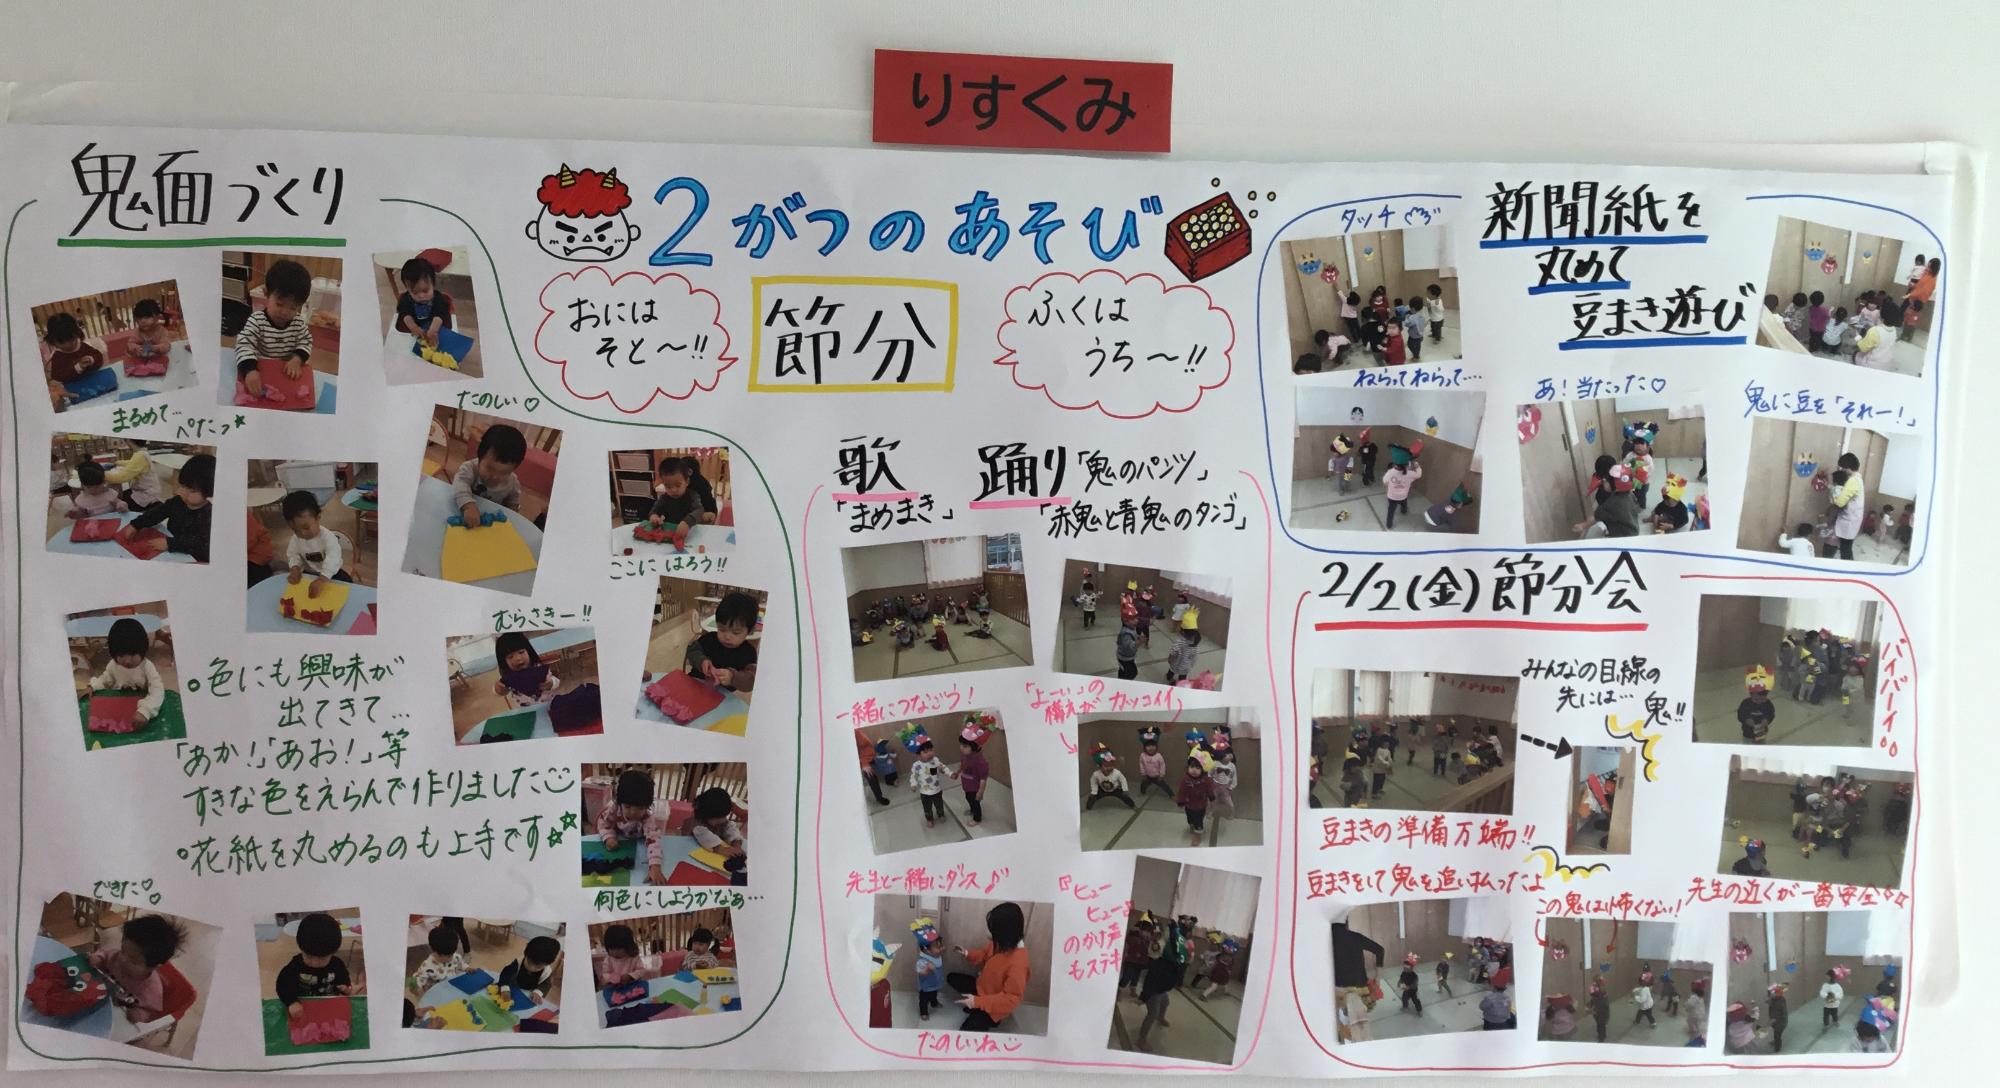 りすくみ
2がつのあそび
節分
おには
そと〜!!
ふくは
うち〜!!
鬼面づくり
まるめて…
ぺたっ★
たのしい♡
ここに はろう!!
むらさきー!!
。色にも興味が
出てきて…
「あか!」「あお!」等
すきな色をえらんで作りました☺
。花紙を丸めるのも上手です☆☆
できた♡
何色にしようかなぁ…
歌
「まめまき」
踊り「鬼のパンツ」
「赤鬼と青鬼のタンゴ」
一緒につなごう!
「よーい」の
構えがカッコイイ
先生と一緒にダンス♪
『ヒュー
ヒュー』
のかけ声
もステキ
たのしいね☺
新聞紙を
丸めて
豆まき遊び
タッチ
ねらってねらって…
あ!当たった♡
鬼に豆を「それー!」
2/2(金)節分会
みんなの目線の
先には…
鬼!!
バイバーイ
豆まきの準備万端!!
豆まきをして鬼を追い払ったよ
この鬼は怖くない!
先生の近くが一番安全☆☆